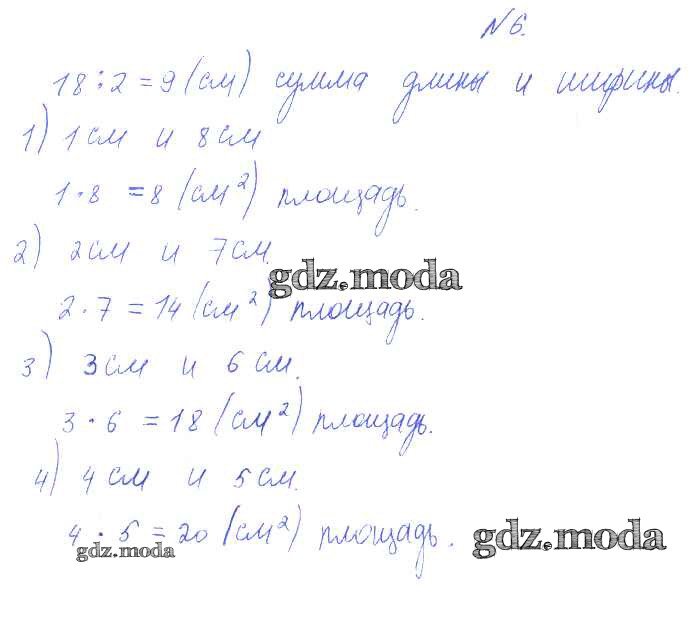 № 6.
18 : 2 = 9 (см) сумма длины и ширины.
1) 1 см и 8 см
1 · 8 = 8 (см²) площадь.
2) 2 см и 7 см.
gdz.moda
2 · 7 = 14 (см²) площадь.
3) 3 см и 6 см.
3 · 6 = 18 (см²) площадь.
4) 4 см и 5 см.
4 · 5 = 20 (см²) площадь.
gdz.moda
gdz.moda